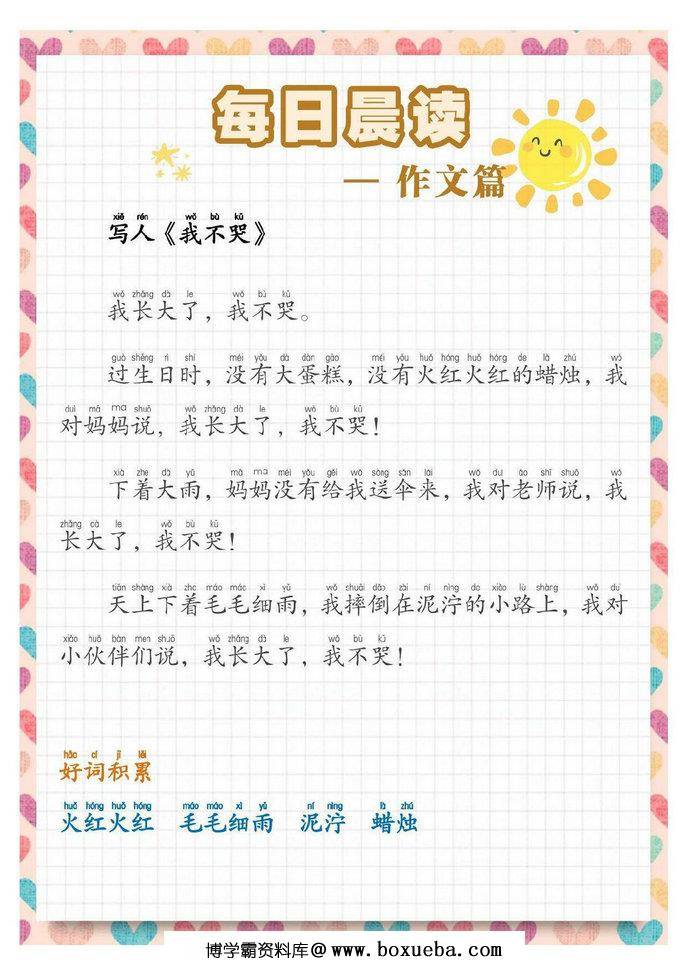 每日晨读
— 作文篇
xiě rén wǒ bù kū
写人《我不哭》
wǒ zhǎng dà le wǒ bù kū
我长大了，我不哭。
guò shēng rì shí méi yǒu dà dàn gāo méi yǒu huǒ hóng huǒ hóng de là zhú wǒ
过生日时，没有大蛋糕，没有火红火红的蜡烛，我
duì mā ma shuō wǒ zhǎng dà le wǒ bù kū
对妈妈说，我长大了，我不哭！
xià zhe dà yǔ mā ma méi yǒu gěi wǒ sòng sǎn lái wǒ duì lǎo shī shuō wǒ
下着大雨，妈妈没有给我送伞来，我对老师说，我
zhǎng dà le wǒ bù kū
长大了，我不哭！
tiān shàng xià zhe máo máo xì yǔ wǒ shuāi dǎo zài ní nìng de xiǎo lù shàng wǒ duì
天上下着毛毛细雨，我摔倒在泥泞的小路上，我对
xiǎo huǒ bàn men shuō wǒ zhǎng dà le wǒ bù kū
小伙伴们说，我长大了，我不哭！
hǎo cí jī lěi
好词积累
huǒ hóng huǒ hóng máo máo xì yǔ ní nìng là zhú
火红火红 毛毛细雨 泥泞 蜡烛
博学霸资料库@ www.boxueba.com